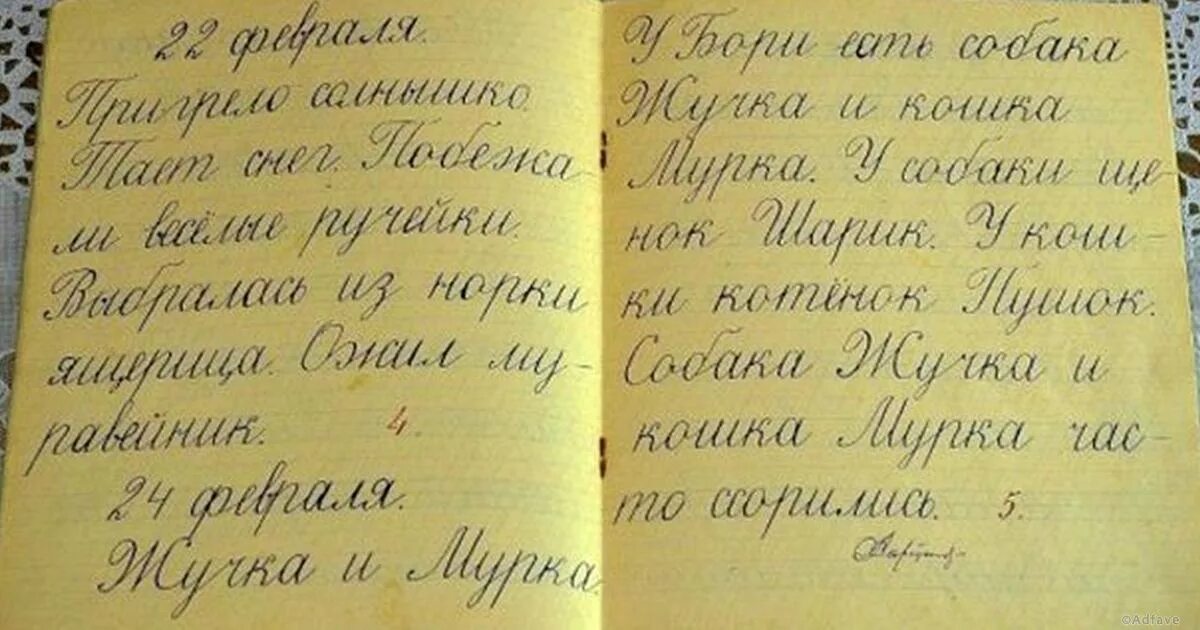 22 февраля.
Пригрело солнышко.
Тает снег. Побежа-
ли весёлые ручейки.
Выбралась из норки
ящерица. Ожил му-
равейник. 4.
24 февраля.
Жучка и Мурка.
У Бори есть собака
Жучка и кошка
Мурка. У собаки ще-
нок Шарик. У кош-
ки котёнок Пушок.
Собака Жучка и
кошка Мурка час-
то ссорились. 5.
©Adfave